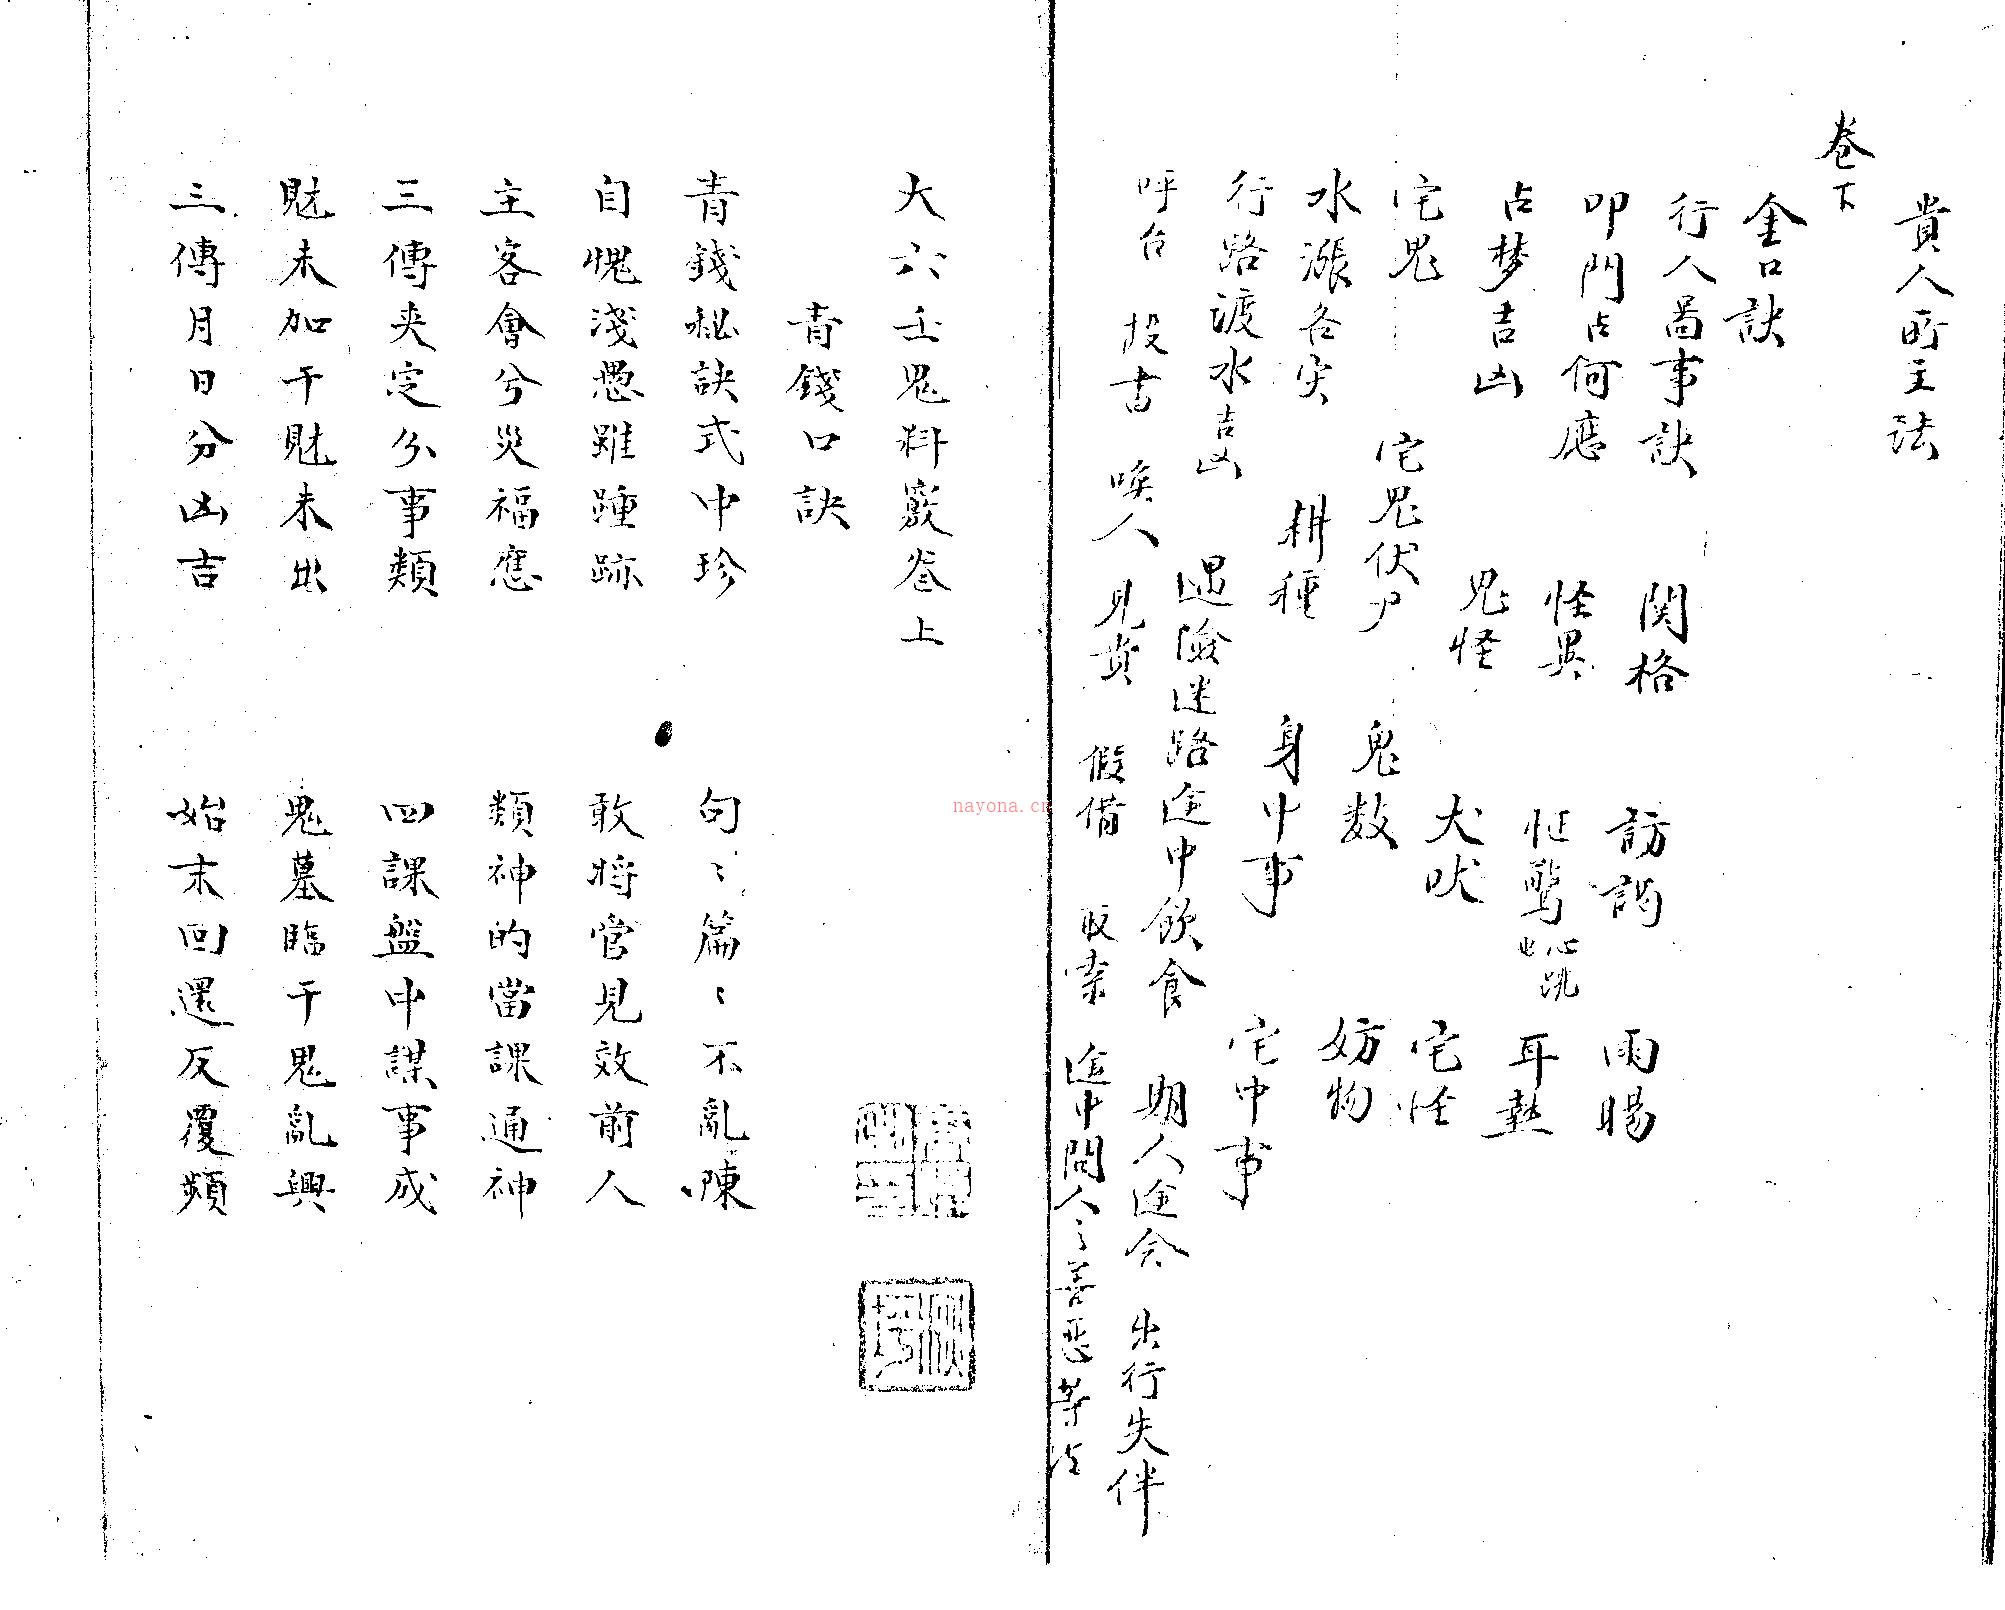 貴人所主法
卷下
金口訣
行人啚事訣 関格 訪謁 雨暘
叩門占何應 怪異 怔驚 心跳也 耳熱
占梦吉凶 鬼怪 犬吠 宅怪
宅鬼 宅鬼伏尸 鬼数 妨物
水漲各灾 耕種 身中事 宅中事
行路渡水吉凶 遇險迷路途中飲食 期人途会 出行失伴
呼召 投书 喚人 見貴 假借 取索 途中問人之善惡等法
大六壬鬼料竅卷上
青錢口訣
青錢秘訣式中珍 句〻篇〻不亂陳
自愧淺愚雖踵跡 敢将管見效前人
主客會兮災福應 類神的當課通神
三傳夹定分事類 四課盤中謀事成
財未加干財未出 鬼墓臨干鬼亂興
三傳月日分凶吉 始末回還反覆頻
nayona.cn